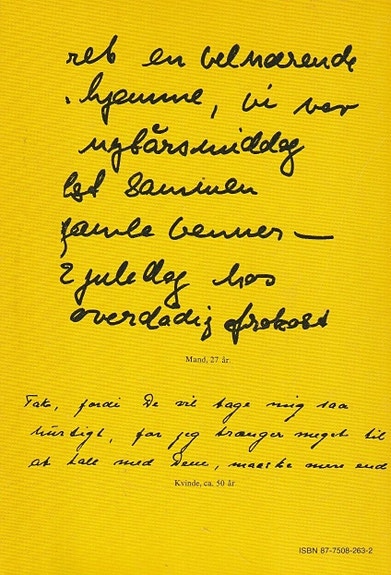 ret en velnærende
hjemme, vi var
nytårsmiddag
lidt sammen
gamle venner —
2 juledag hos
overdådig frokost
Mand, 27 år.
Tak, fordi De vil tage mig saa
hurtigt, for jeg trænger meget til
at tale med Dem, maaske mere end
Kvinde, ca. 50 år
ISBN 87-7508-263-2